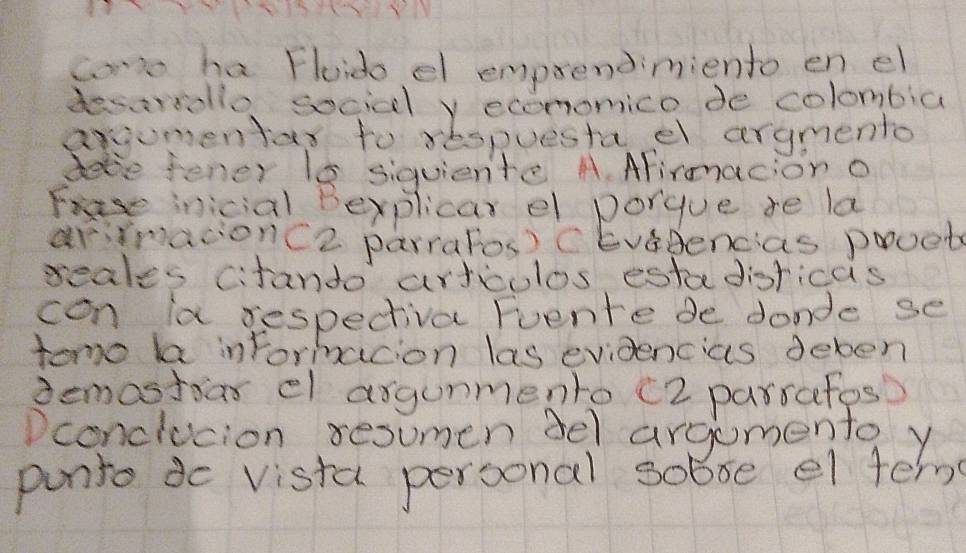 como ha Fluido el emprendimiento en el
desarrollo social y ecomomico de colombia
argumentar tu respuesta el argmento
debe tener lo siguiente A. Afirmacion o
Frase inicial B explicar el porque de la
afirmacion (2 parrafos) C Evidencias
reales citando articulos estadisticas
con la respectiva Fuente de donde se
tomo la informacion las evidencias deben
demostrar el argunmento (2 parrafos)
D conclucion resumen del argumento y
punto de vista personal sobre el tema